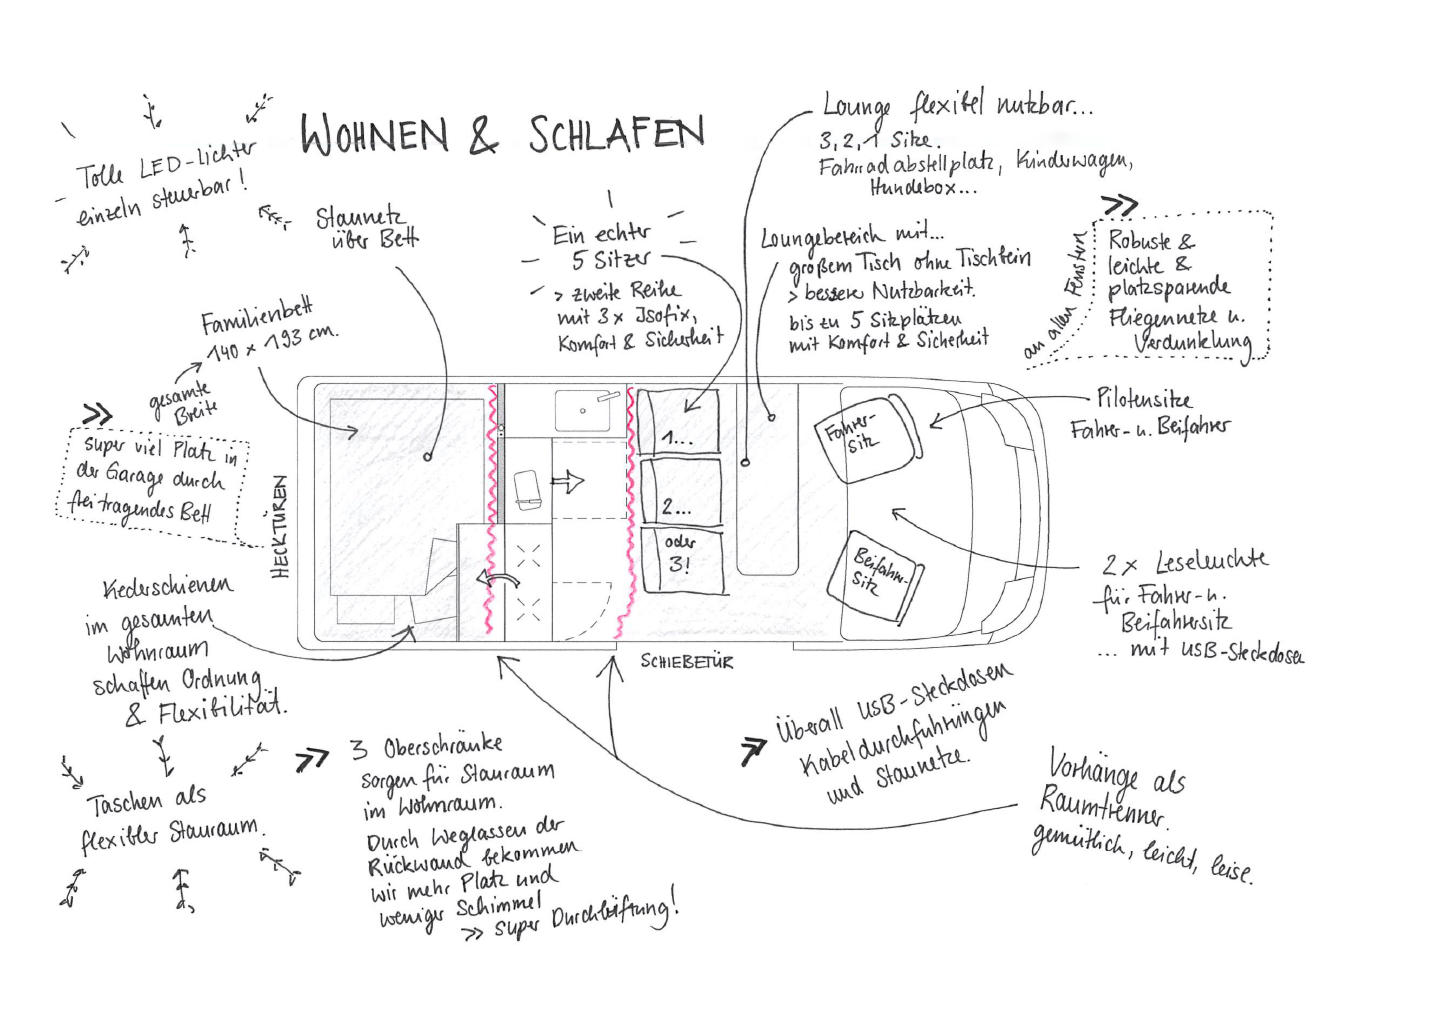 WOHNEN & SCHLAFEN
Tolle LED-Lichter
einzeln steuerbar!
Staunetz
über Bett
Familienbett
140 x 193 cm.
gesamte
Breite
super viel Platz in
der Garage durch
freitragendes Bett
HECKTÜREN
Kederschienen
im gesamten
Wohnraum
schaffen Ordnung
& Flexibilität.
Taschen als
flexibler Stauraum.
Ein echter
5 Sitzer
> zweite Reihe
mit 3x Isofix,
Komfort & Sicherheit
Lounge flexibel nutzbar...
3, 2, 1 Sitze.
Fahrradabstellplatz, Kinderwagen,
Hundebox...
Loungebereich mit...
großem Tisch ohne Tischbein
> bessere Nutzbarkeit.
bis zu 5 Sitzplätzen
mit Komfort & Sicherheit
an allen Fenstern
Robuste &
leichte &
platzsparende
Fliegennetze u.
Verdunklung
Pilotensitze
Fahrer- u. Beifahrer
1...
2...
oder
3!
Fahrer-
sitz
Beifahrer-
sitz
2x Leseleuchte
für Fahrer- u.
Beifahrersitz
... mit USB-Steckdosen
SCHIEBETÜR
3 Oberschränke
sorgen für Stauraum
im Wohnraum.
Durch Weglassen der
Rückwand bekommen
wir mehr Platz und
weniger Schimmel
>> super Durchlüftung!
>> Überall USB-Steckdosen
Kabeldurchführungen
und Staunetze.
Vorhänge als
Raumtrenner.
gemütlich, leicht, leise.